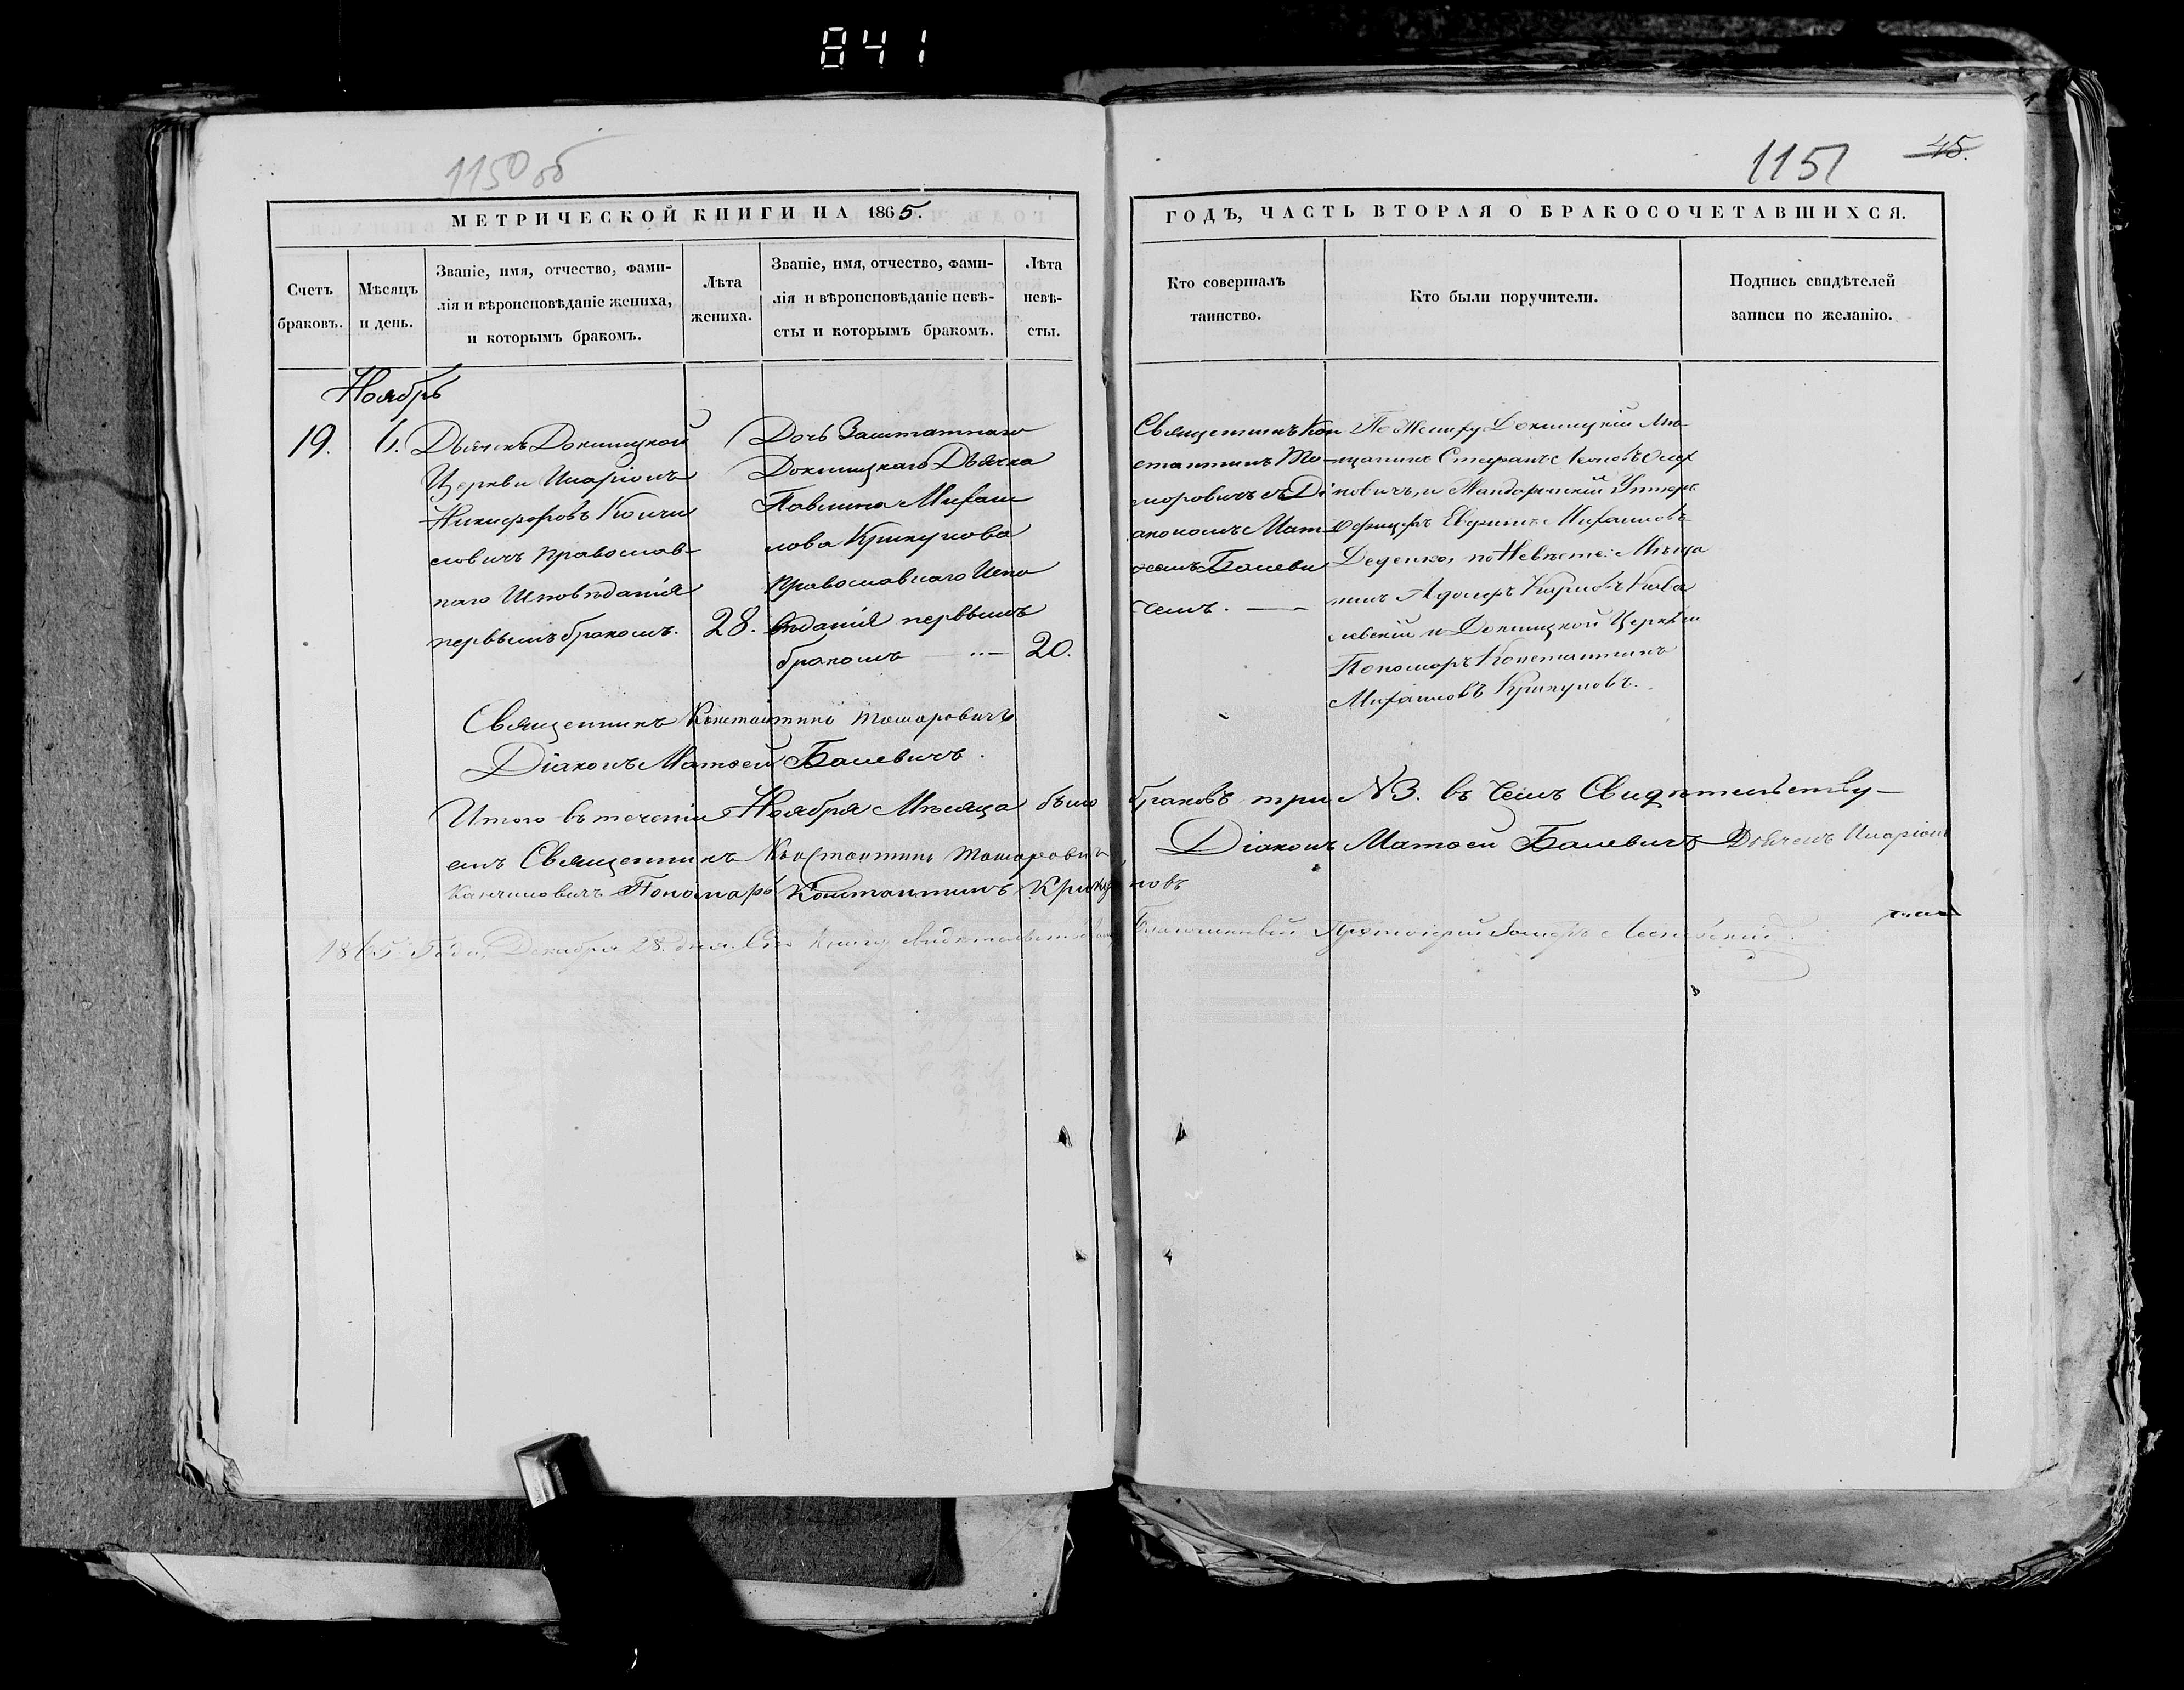 841
1150 об
1151
45.
МЕТРИЧЕСКОЙ КНИГИ НА 1865.
ГОДЪ, ЧАСТЬ ВТОРАЯ О БРАКОСОЧЕТАВШИХСЯ.
Счетъ
браковъ.
Мѣсяцъ
и день.
Званіе, имя, отчество, фами-
лія и вѣроисповѣданіе жениха,
и которымъ бракомъ.
Лѣта
жениха.
Званіе, имя, отчество, фами-
лія и вѣроисповѣданіе невѣ-
сты и которымъ бракомъ.
Лѣта
невѣ-
сты.
Кто совершалъ
таинство.
Кто были поручители.
Подпись свидѣтелей
записи по желанію.
Ноябрь
19.
6.
Дьячекъ Докшицкой
Церкви Иларіонъ
Никифоровъ
словичъ православ-
наго Исповѣданія
первымъ бракомъ.
28.
Дочь Заштатнаго
Докшицкаго Дьячка
Павлина Михаи
лова Крикунова
православнаго Испо
вѣданія первымъ
бракомъ
20.
Священникъ Кон
стантинъ То-
моровичъ съ Ді
акономъ Мат-
ѳеемъ Балеви
чемъ.
По Жениху Докшицкій Мѣ-
щанинъ Стефанъ
новичъ, и Унтеръ
офицеръ Михаиловъ
Деденко, по Невѣсте: Мѣща
нинъ Адольфъ Карловъ
левскій и Докшицкой Церкви
Пономарь Константинъ
Михаиловъ Крикуновъ.
Священникъ Константинъ Томаровичъ
Діаконъ Матѳей Балевичъ.
Итого въ теченіи Ноября Мѣсяца было браковъ три №3. въ чемъ Свидѣтельству-
емъ Священникъ Константинъ Томаровичъ, Діаконъ Матѳей Балевичъ Дьячекъ Иларіонъ
Пономарь Константинъ Крикуновъ
1865 Года, Декабря 28. дня. Сію Книгу свидѣтельствовалъ Благочинный Протоіерей